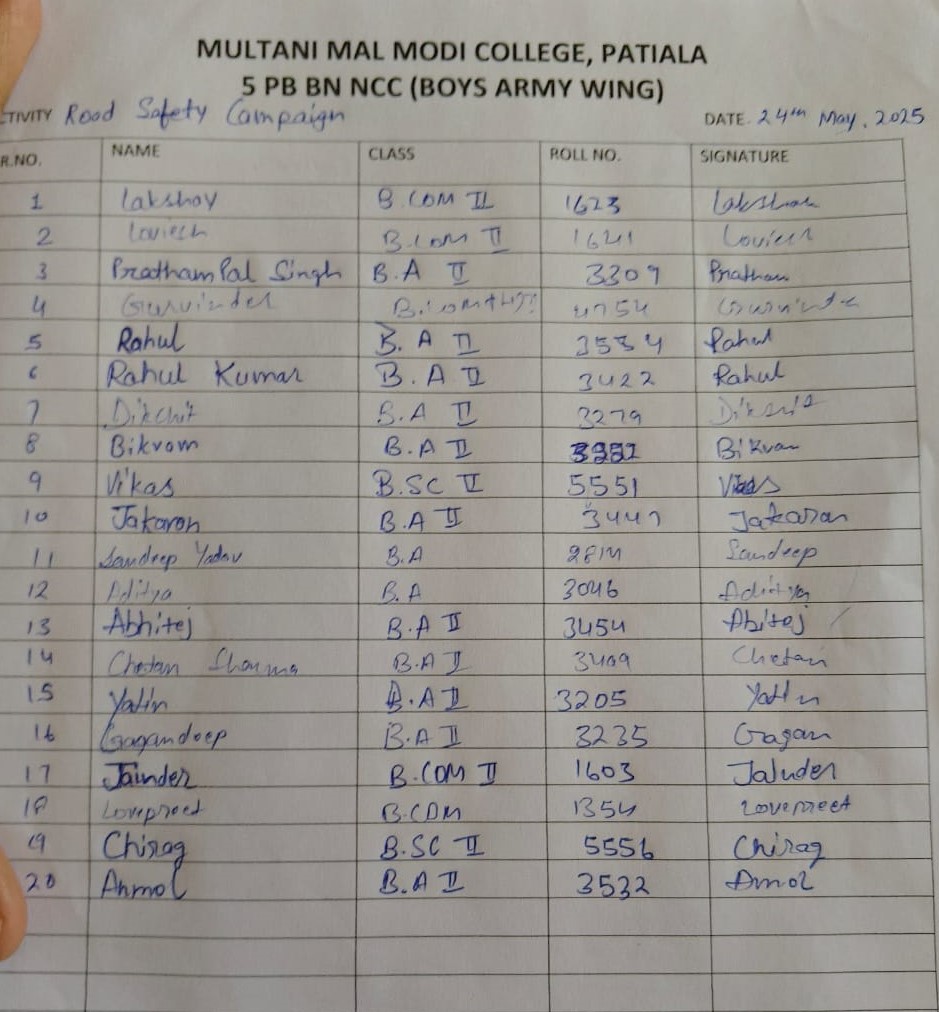 MULTANI MAL MODI COLLEGE, PATIALA
5 PB BN NCC (BOYS ARMY WING)
CTIVITY Road Safety Campaign DATE. 24th May, 2025
R.NO. NAME CLASS ROLL NO. SIGNATURE
1 Lakshay B.COM II 1623 Lakshay
2 Loviesh B.COM II 1641 Loviesh
3 PrathamPal Singh B.A II 3309 Pratham
4 Gurvinder 4754 Gurvinder
5 Rahul B. A II 3534 Rahul
6 Rahul Kumar B. A II 3422 Rahul
7 Dikchit B.A II 3279
8 Bikram B.A II Bikram
9 Vikas B.SC II 5551 Vikas
10 Jakaran B.A II 3447 Jakaran
11 Sandeep Yadav B.A Sandeep
12 Aditya B.A 3046 Aditya
13 Abhitej B.A II 3454 Abitej
14 Chetan Sharma B.A II 3409 Chetan
15 Yatin B.A II 3205 Yatin
16 Gagandeep B.A II 3235 Gagan
17 Jainder B.COM II 1603
18 Lovepreet B.COM 1354 Lovepreet
19 Chirag B.SC II 5556 Chirag
20 Anmol B.A II 3532 Anmol